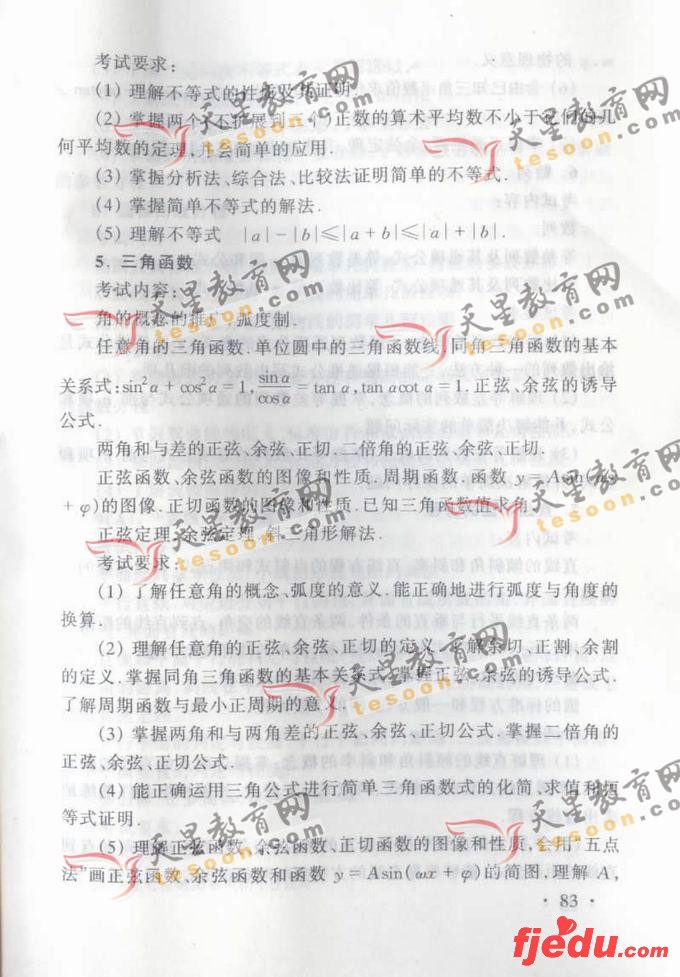 考试要求:
(1) 理解不等式的性质及其证明.
(2) 掌握两个(不扩展到三个)正数的算术平均数不小于它们的几
何平均数的定理,并会简单的应用.
(3) 掌握分析法、综合法、比较法证明简单的不等式.
(4) 掌握简单不等式的解法.
(5) 理解不等式 |a|-|b|≤|a+b|≤|a|+|b|.
5. 三角函数
考试内容:
角的概念的推广.弧度制.
任意角的三角函数.单位圆中的三角函数线.同角三角函数的基本
关系式:sin²α+cos²α=1,sinα/cosα=tanα,tanαcotα=1.正弦、余弦的诱导
公式.
两角和与差的正弦、余弦、正切.二倍角的正弦、余弦、正切.
正弦函数、余弦函数的图像和性质.周期函数.函数 y=Asin(ωx
+φ)的图像.正切函数的图像和性质.已知三角函数值求角.
正弦定理.余弦定理.斜三角形解法.
考试要求:
(1) 了解任意角的概念、弧度的意义.能正确地进行弧度与角度的
换算.
(2) 理解任意角的正弦、余弦、正切的定义.了解余切、正割、余割
的定义.掌握同角三角函数的基本关系式.掌握正弦、余弦的诱导公式.
了解周期函数与最小正周期的意义.
(3) 掌握两角和与两角差的正弦、余弦、正切公式.掌握二倍角的
正弦、余弦、正切公式.
(4) 能正确运用三角公式进行简单三角函数式的化简、求值和恒
等式证明.
(5) 理解正弦函数、余弦函数、正切函数的图像和性质,会用"五点
法"画正弦函数、余弦函数和函数 y=Asin(ωx+φ)的简图,理解 A,
· 83 ·
天星教育网
tesoon.com
天星教育网
tesoon.com
天星教育网
tesoon.com
天星教育网
tesoon.com
天星教育网
tesoon.com
天星教育网
tesoon.com
天星教育网
tesoon.com
天星教育网
tesoon.com
天星教育网
tesoon.com
fjedu.com